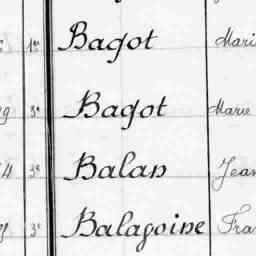 1re Bagot Mari
9 3e Bagot Marie
4 3e Balan Jean
3e Balagoine Fra